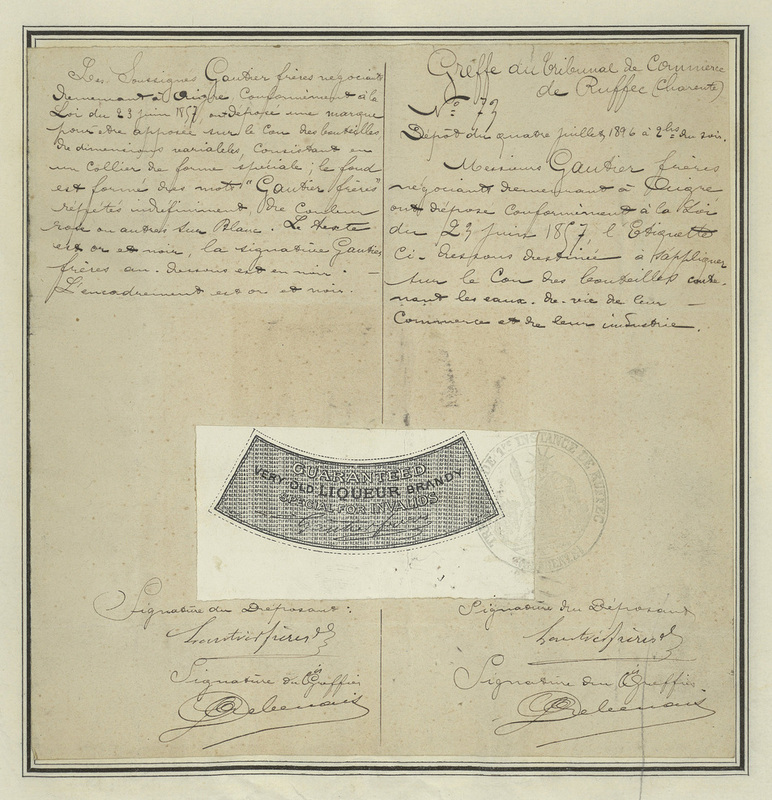 Les Soussignés Gautier frères négociants
demeurant à Aigre, Conformément à la
Loi du 23 juin 1857, ont déposé une marque
pour être apposée sur le Cou des bouteilles
de dimensions variables, Consistant en
un Collier de forme spéciale ; le fond
est formé des mots "Gautier frères"
répétés indéfiniment de Couleur
rose ou autres sur Blanc. Le texte
est or et noir, la signature Gautier
frères au-dessous est en noir. —
L'encadrement est or et noir.
Greffe du Tribunal de Commerce
de Ruffec (Charente)
N° 73
Dépôt du quatre juillet 1896 à 2 hres du soir.
Messieurs Gautier frères
négociants demeurant à Aigre
ont déposé Conformément à la Loi
du 23 juin 1857, l'Etiquette
Ci-dessous destinée à s'appliquer
sur le Cou des bouteilles conte-
nant les eaux-de-vie de leur —
Commerce et de leur industrie.
GUARANTEED
VERY OLD LIQUEUR BRANDY
SPECIAL FOR INVALIDS
Gautier frères
TRIBUNAL DE 1RE INSTANCE DE RUFFEC
Signature du Déposant :
Gautier frères
Signature du Greffier
Signature du Déposant
Gautier frères
Signature du Greffier